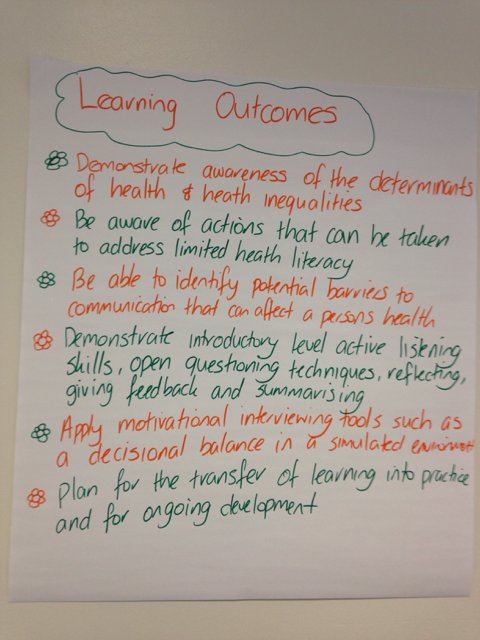 Learning Outcomes
Demonstrate awareness of the determinants
of health & heath inequalities
Be aware of actions that can be taken
to address limited heath literacy
Be able to identify potential barriers to
communication that can affect a persons health
Demonstrate introductory level active listening
skills, open questioning techniques, reflecting,
giving feedback and summarising
Apply motivational interviewing tools such as
a decisional balance in a simulated environment
Plan for the transfer of learning into practice
and for ongoing development